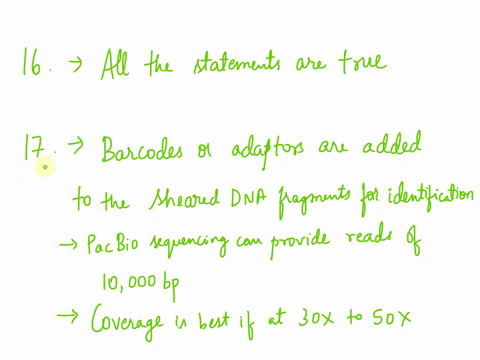 16. → All the statements are true
17. → Barcodes or adaptors are added
to the sheared DNA fragments for identification
→ PacBio sequencing can provide reads of
10,000 bp
→ Coverage is best if at 30X to 50X